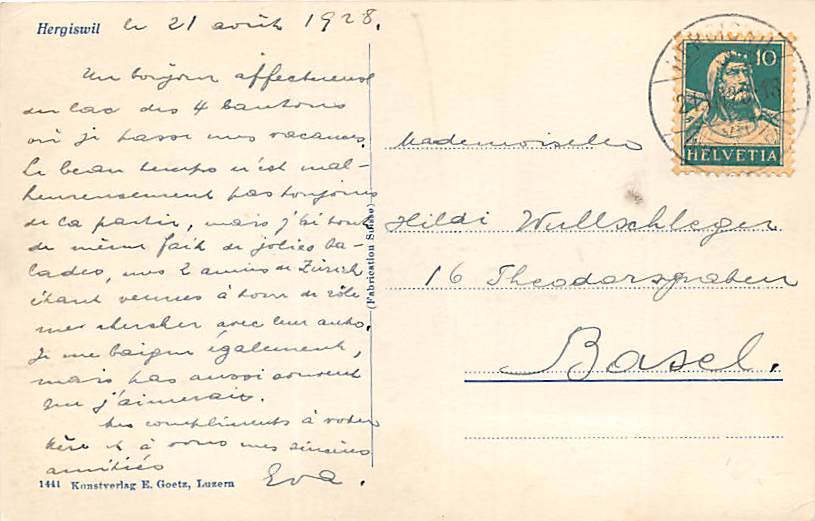 Hergiswil le 21 août 1928.
Un bonjour affectueux
du lac des 4 Cantons
où je passe mes vacances.
Le beau temps n'est mal-
heureusement pas toujours
de la partie, mais j'ai tout
de même fait de jolies ba-
lades, mes 2 amies de Zürich
étant venues à tour de rôle
me chercher avec leur auto.
Je me baigne également,
mais pas aussi souvent
que j'aimerais.
Mes compliments à votre
Mère et à vous mes sincères
amitiés
Eva.
1441 Kunstverlag E. Goetz, Luzern
(Fabrication Suisse)
10
HELVETIA
Mademoiselle
Hildi Wullschleger
16 Theodorsgraben
Basel.